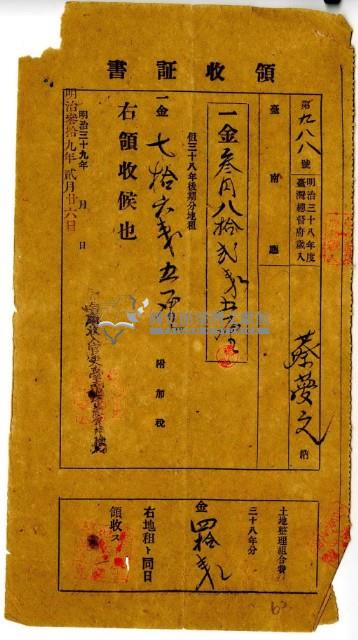 領收証書
第九八八號
明治三十八年度
臺灣總督府歲入
蔡夢文
納
臺南廳
一金叁円八拾弐戔五厘
但三十八年後期分地租
一金七拾六戔五厘
附加稅
右領收候也
明治三十九年 月 日
明治參拾九年貳月廿六日
土地整理組合費
三十八年分
金四拾戔
右地租ト同日
領收ス